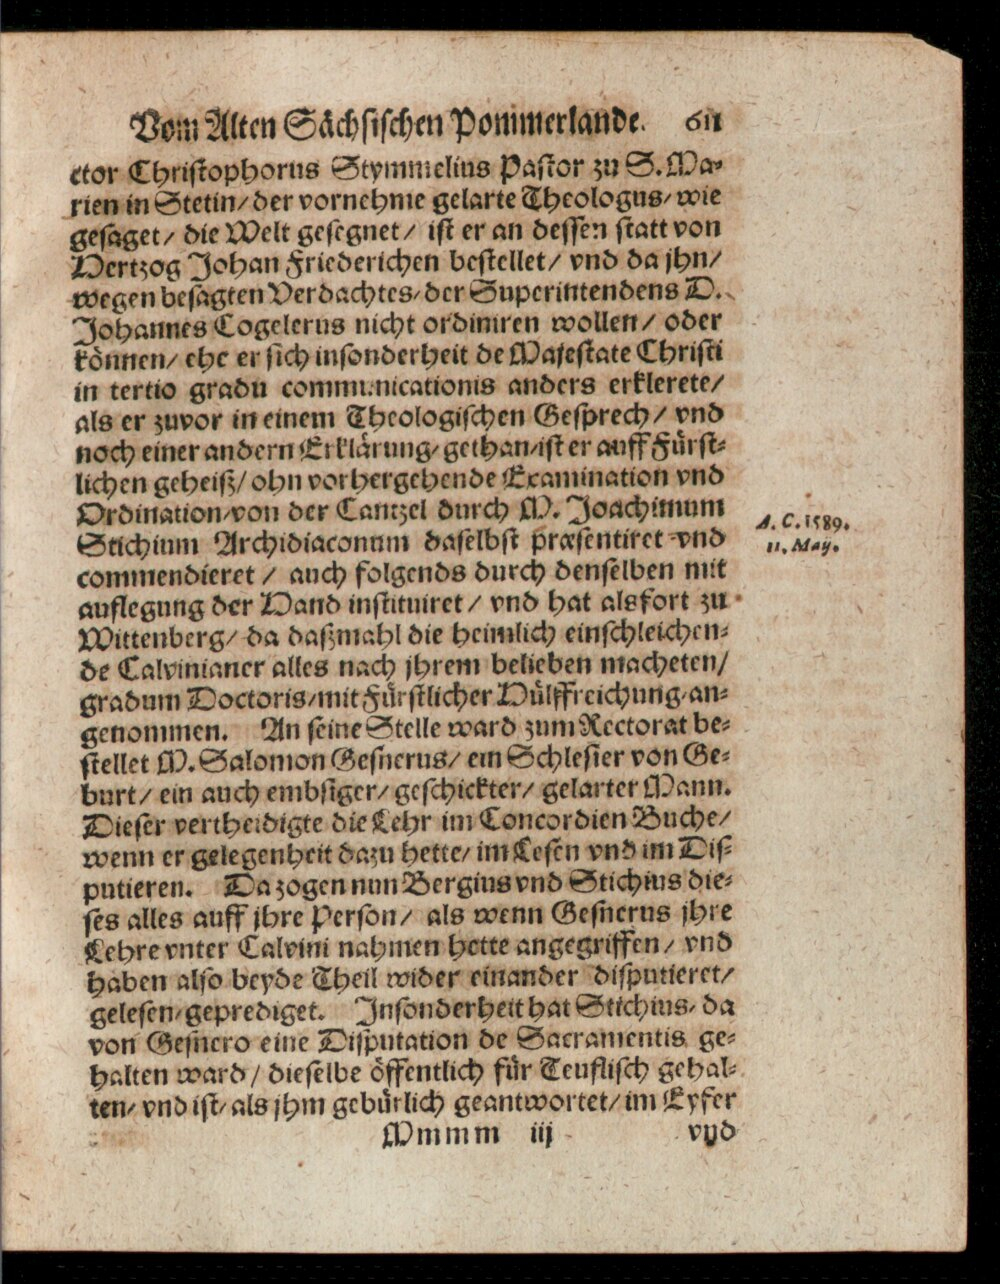 Vom Alten Sächsischen Pommerlande. 611
ctor Christophorus Stymmelius Pastor zu S. Ma-
rien in Stetin/ der vornehme gelarte Theologus/ wie
gesaget/ die Welt gesegnet/ ist er an dessen statt von
Hertzog Johan Friederichen bestellet/ vnd da jhn/
wegen besagten Verdachtes/ der Superintendens D.
Johannes Cogelerus nicht ordiniren wollen/ oder
können/ ehe er sich insonderheit de Majestate Christi
in tertio gradu communicationis anders erklerete/
als er zuvor in einem Theologischen Gesprech/ vnd
noch einer andern Erklärung/ gethan/ ist er auff Fürst-
lichen geheiß/ ohn vorhergehende Examination vnd
Ordination/ von der Cantzel durch M. Joachimum
Stichium Archidiaconum daselbst præsentiret vnd
commendieret/ auch folgends durch denselben mit
auflegung der Hand instituiret/ vnd hat alsfort zu
Wittenberg/ da daßmahl die heimlich einschleichen-
de Calvinianer alles nach jhrem belieben macheten/
gradum Doctoris/ mit Fürstlicher Hülffreichung/ an-
genommen. An seine Stelle ward zum Rectorat be-
stellet M. Salomon Gesnerus/ ein Schlesier von Ge-
burt/ ein auch embsiger/ geschickter/ gelarter Mann.
Dieser vertheidigte die Lehr im Concordien Buche/
wenn er gelegenheit dazu hette/ im Lesen vnd im Dis-
putieren. Da zogen nun Bergius vnd Stichius die-
ses alles auff jhre Person/ als wenn Gesnerus jhre
Lehre vnter Calvini nahmen hette angegriffen/ vnd
haben also beyde Theil wider einander disputieret/
gelesen/ geprediget. Insonderheit hat Stichius/ da
von Gesnero eine Disputation de Sacramentis ge-
halten ward/ dieselbe öffentlich für Teuflisch gehal-
ten/ vnd ist/ als jhm gebürlich geantwortet/ im Eyfer
Mmmm iij vnd
A. C. 1589.
11. May.